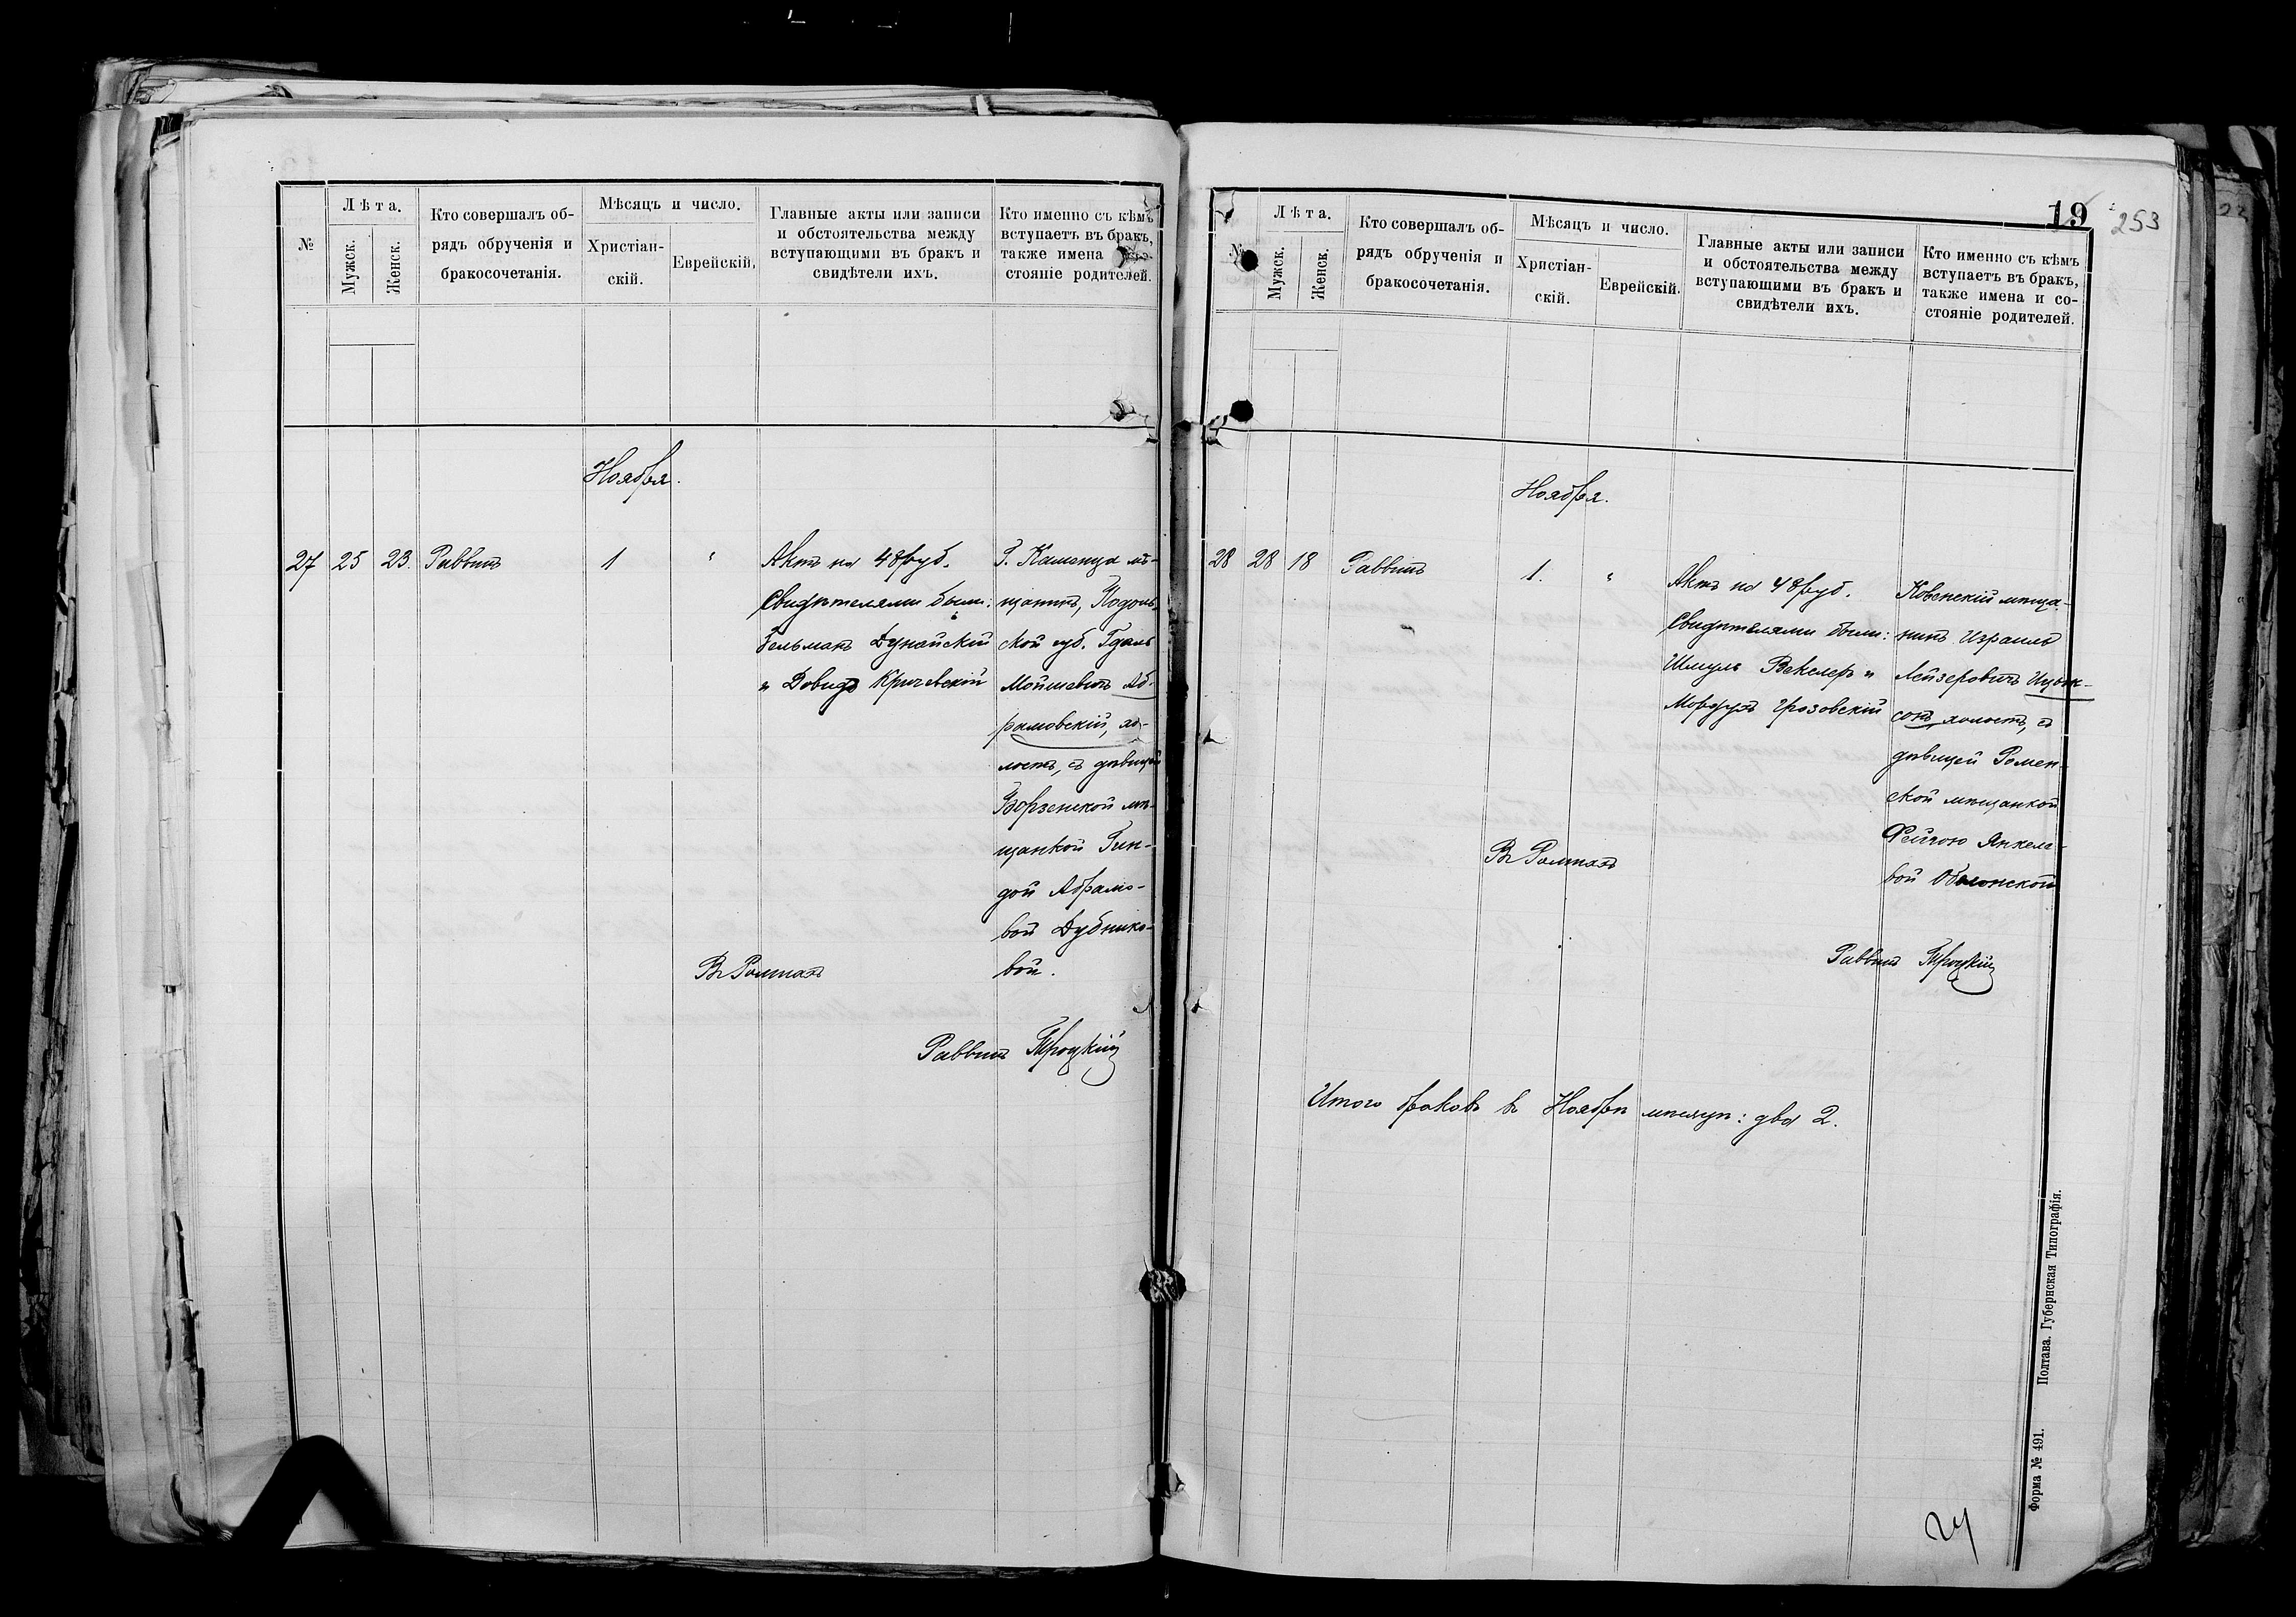 №
Лѣта.
Мужск.
Женск.
Кто совершалъ об-
рядъ обрученія и
бракосочетанія.
Мѣсяцъ и число.
Христіан-
скій.
Еврейскій.
Главные акты или записи
и обстоятельства между
вступающими въ бракъ и
свидѣтели ихъ.
Кто именно съ кѣмъ
вступаетъ въ бракъ,
также имена
стояніе родителей.
Ноября.
27 25 23. Раввинъ 1 "
Актъ на 48 руб.
Свидѣтелями были:
Зельманъ Дунайскій
и Довидъ Кричевскій
Г. Каменца мѣ-
щанинъ, Подоль-
ской губ. Гдаль
Мойшевичъ Аб-
рамовскій, хо-
лостъ, съ дѣвицей
Борзенской мѣ-
щанкой Гин-
дой Абрамо-
вой Дубнико-
вой.
Въ Ромнахъ
Раввинъ Троцкій
19
253
№
Лѣта.
Мужск.
Женск.
Кто совершалъ об-
рядъ обрученія и
бракосочетанія.
Мѣсяцъ и число.
Христіан-
скій.
Еврейскій.
Главные акты или записи
и обстоятельства между
вступающими въ бракъ и
свидѣтели ихъ.
Кто именно съ кѣмъ
вступаетъ въ бракъ,
также имена и со-
стояніе родителей.
Ноября.
28 28 18 Раввинъ 1. "
Актъ на 48 руб.
Свидѣтелями были:
Шмуль Векслеръ и
Мордухъ Грозовскій
Ковенскій мѣща-
нинъ Израиль
Лейзеровичъ Ицык-
сонъ, холостъ, съ
дѣвицей Ромен-
ской мѣщанкой
Фейгою Янкеле-
вой Оболонской
Въ Ромнахъ
Раввинъ Троцкій
Итого браковъ въ Ноябрѣ мѣсяцѣ: два 2.
Форма № 491. Полтава. Губернская Типографія.
24